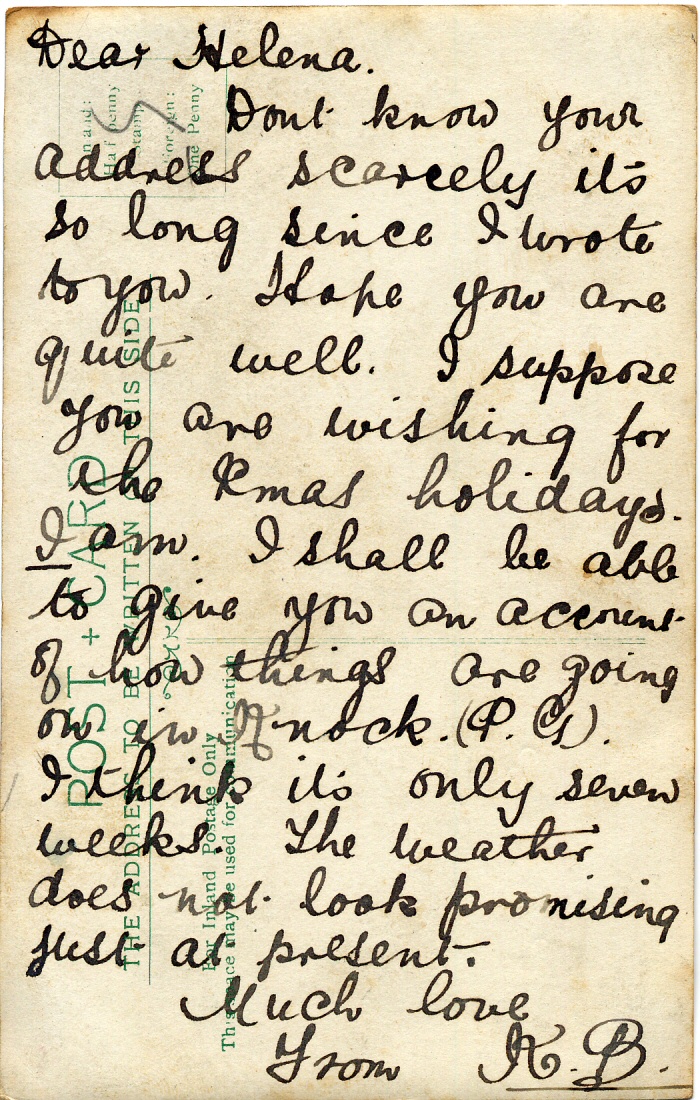 Dear Helena.
Dont know your
address scarcely it's
so long since I wrote
to you. Hope you are
quite well. I suppose
you are wishing for
the Xmas holidays.
I am. I shall be able
to give you an account
of how things are going
on in Knock. (P. G).
I think it's only seven
weeks. The weather
does not look promising
just at present.
Much love
From K. B.
POST + CARD
THE ADDRESS TO BE WRITTEN ON THIS SIDE
For Inland Postage Only
This space may be used for Communication
Inland:
Halfpenny
Stamp
Foreign:
One Penny